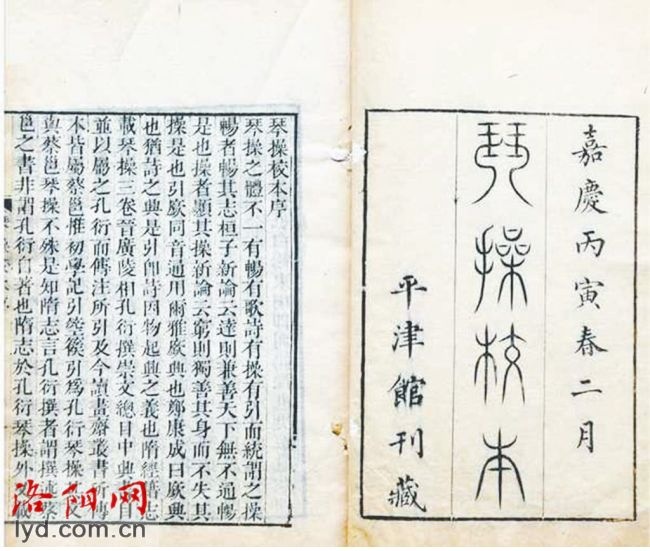 嘉慶丙寅春二月
琴操校本
平津館刊藏
琴操校本序
琴操之體不一有暢有歌詩有操有引而統謂之操
暢者暢其志桓子新論云達則兼善天下無不通暢
是也操者顯其操新論云窮則獨善其身而不失其
操是也引廞同音通用爾雅廞興也鄭康成曰廞興
也猶詩之興是引卽詩因物起興之義也隋經籍志
載琴操三卷晉廣陵相孔衍撰崇文總目中興書目
並以屬之孔衍而傳注所引及今讀書齋叢書所傳
本皆屬蔡邕惟初學記引箜篌引爲孔衍琴操文
與蔡邕琴操不殊是知隋志言孔衍撰者謂撰述蔡
邕之書非謂孔衍自著也隋志於孔衍琴操外
洛阳网
lyd.com.cn